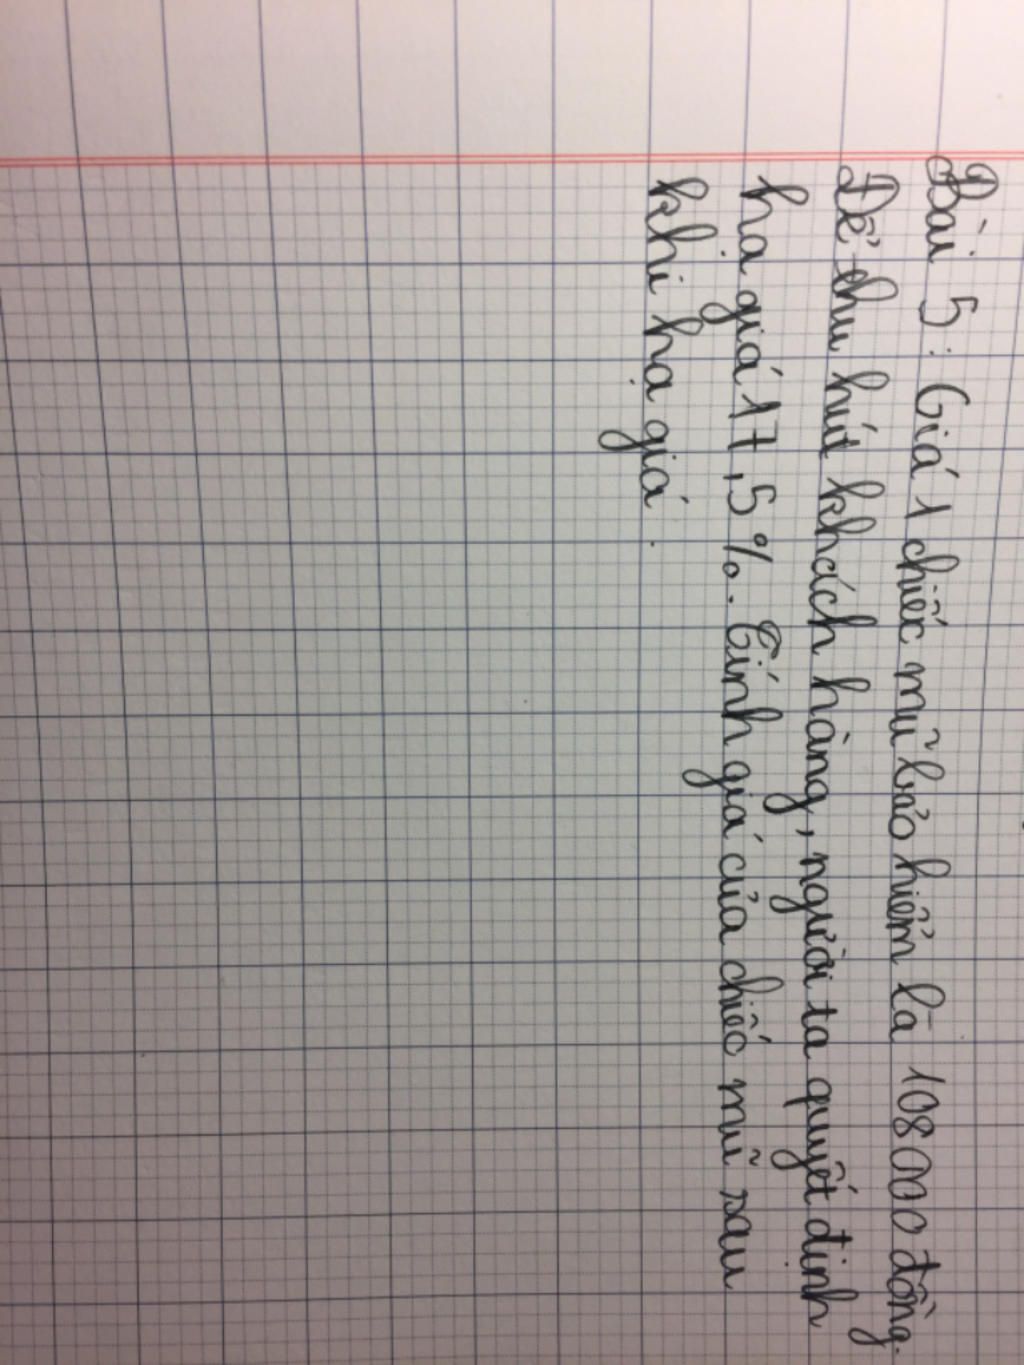 Bài 5: Giá 1 chiếc mũ bảo hiểm là 108000 đồng.
Để thu hút khách hàng, người ta quyết định
hạ giá 17,5%. Tính giá của chiếc mũ sau
khi hạ giá.